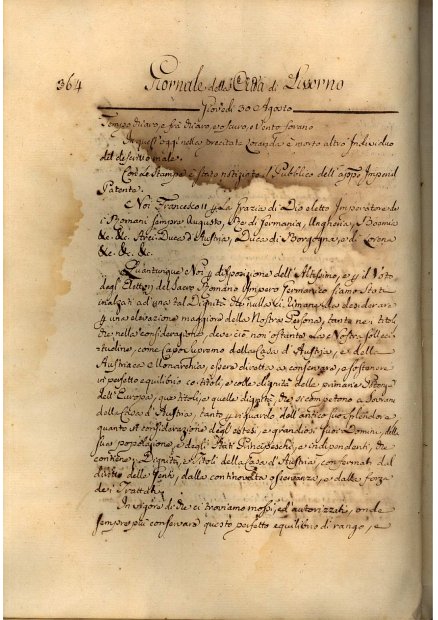 364 Giornale della Città di Livorno
Giovedì 30 Agosto
Tempo chiaro, e frà chiaro, e scuro, e vento forano
A quest'oggi nelle precitate locande è morto altro Individuo
del descritto male.
Con le Stampe è stato notiziato il Pubblico dell'appo Imperial
Patente.
Noi Francesco II p la Grazia di Dio eletto Imperatore de
i Romani sempre Augusto, Re di Germania, Ungheria, Boemia
&c. &c. Arci-Duca d'Austria, Duca di Borgogna, e di Lorena
&c. &c. &c.
Quantunque Noi p disposizione dell'Altissimo, e p il Voto
degli Elettori del Sacro Romano Impero Germanico siamo stati
inalzati ad una tal Dignità che nulla ci rimane da desiderare
p una elevazione maggiore della Nostra Persona, tanto nei titoli
che nella considerazione, deve ciò non ostante la Nostra solleci-
tudine, come Capo Supremo della Casa d'Austria, e della
Austriaca Monarchia, essere diretta a conservare, e sostenere
in perfetto equilibrio co titoli, e colle dignità delle primarie Potenze
dell'Europa, quei titoli, e quelle dignità, che si competono a Sovrani
della Casa d'Austria, tanto p riguardo dell'antico suo splendore
quanto in considerazione degli estesi, e grandiosi suoi Domini, della
sua popolazione, e degli Stati Principeschi, e indipendenti, che
contiene, p Dignità, e titoli della Casa d'Austria, confermati dal
diritto delle Genti, dalla continovata osservanza, e dalla forza
dei Trattati,
In vigore di che ci troviamo mossi, ed autorizzati, onde
sempre più conservare questo perfetto equilibrio di rango, e